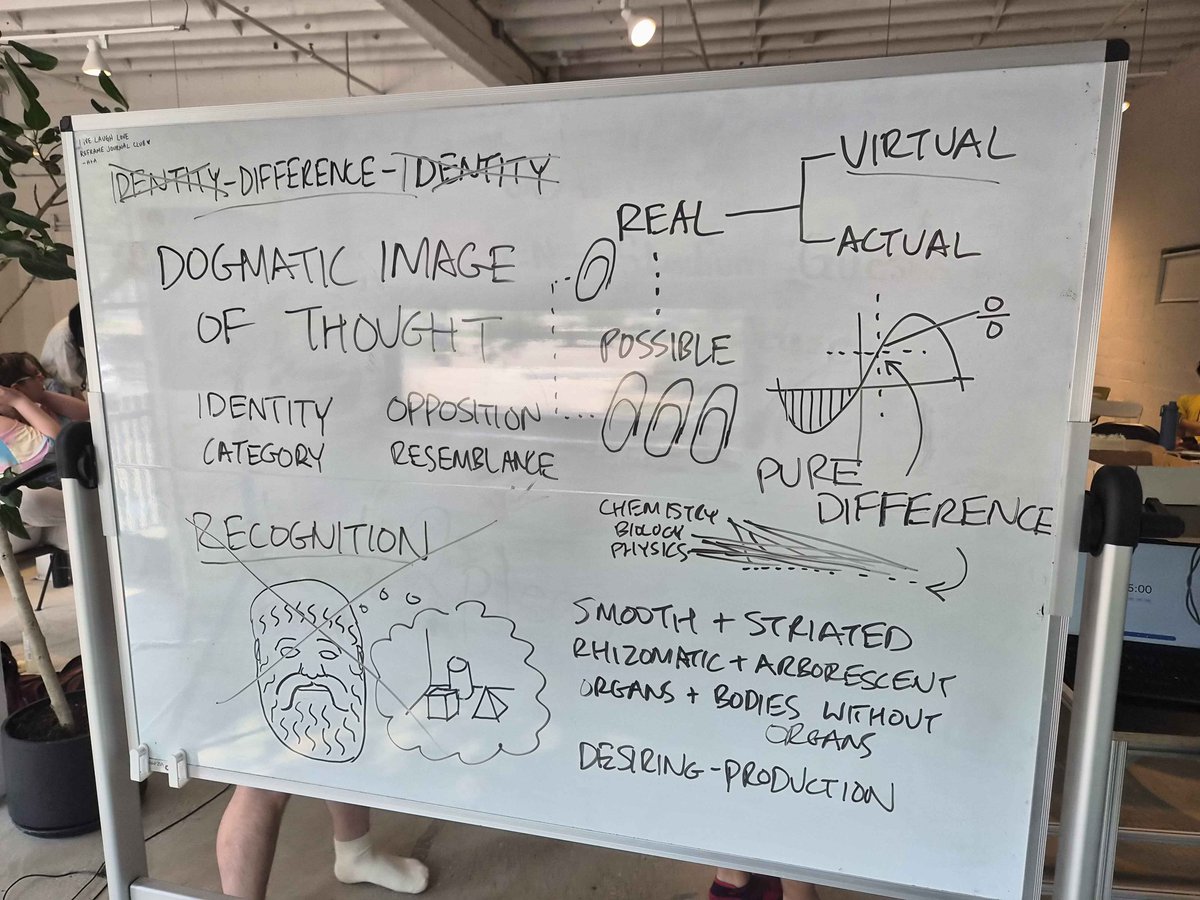 LIVE LAUGH LOVE
REFRAME JOURNAL CLUB
IDENTITY-DIFFERENCE-IDENTITY
DOGMATIC IMAGE
OF THOUGHT
IDENTITY OPPOSITION
CATEGORY RESEMBLANCE
RECOGNITION
REAL
VIRTUAL
ACTUAL
POSSIBLE
0
0
PURE
DIFFERENCE
CHEMISTRY
BIOLOGY
PHYSICS
SMOOTH + STRIATED
RHIZOMATIC + ARBORESCENT
ORGANS + BODIES WITHOUT
ORGANS
DESIRING-PRODUCTION
5:00